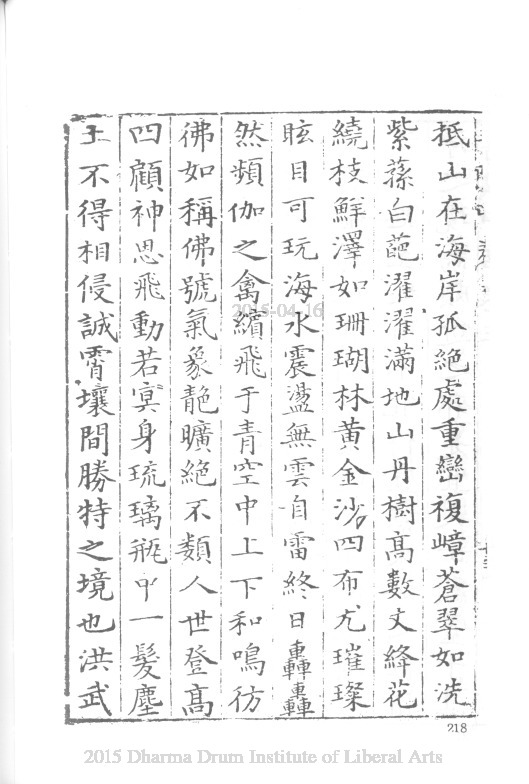 抵山在海岸孤絶處重巒複嶂蒼翠如洗
紫蕬白葩濯濯滿地山丹樹髙數丈絳花
繞枝鮮澤如珊瑚林黄金沙四布尤璀璨
眩目可玩海水震盪無雲自雷終日轟轟
然頻伽之禽繽飛于青空中上下和鳴彷
彿如稱佛號氣象靘曠絶不類人世登髙
四顧神思飛動若寘身琉璃瓶中一髮塵
土不得相侵誠霄壤間勝特之境也洪武
218
2015-04-16
2015 Dharma Drum Institute of Liberal Arts